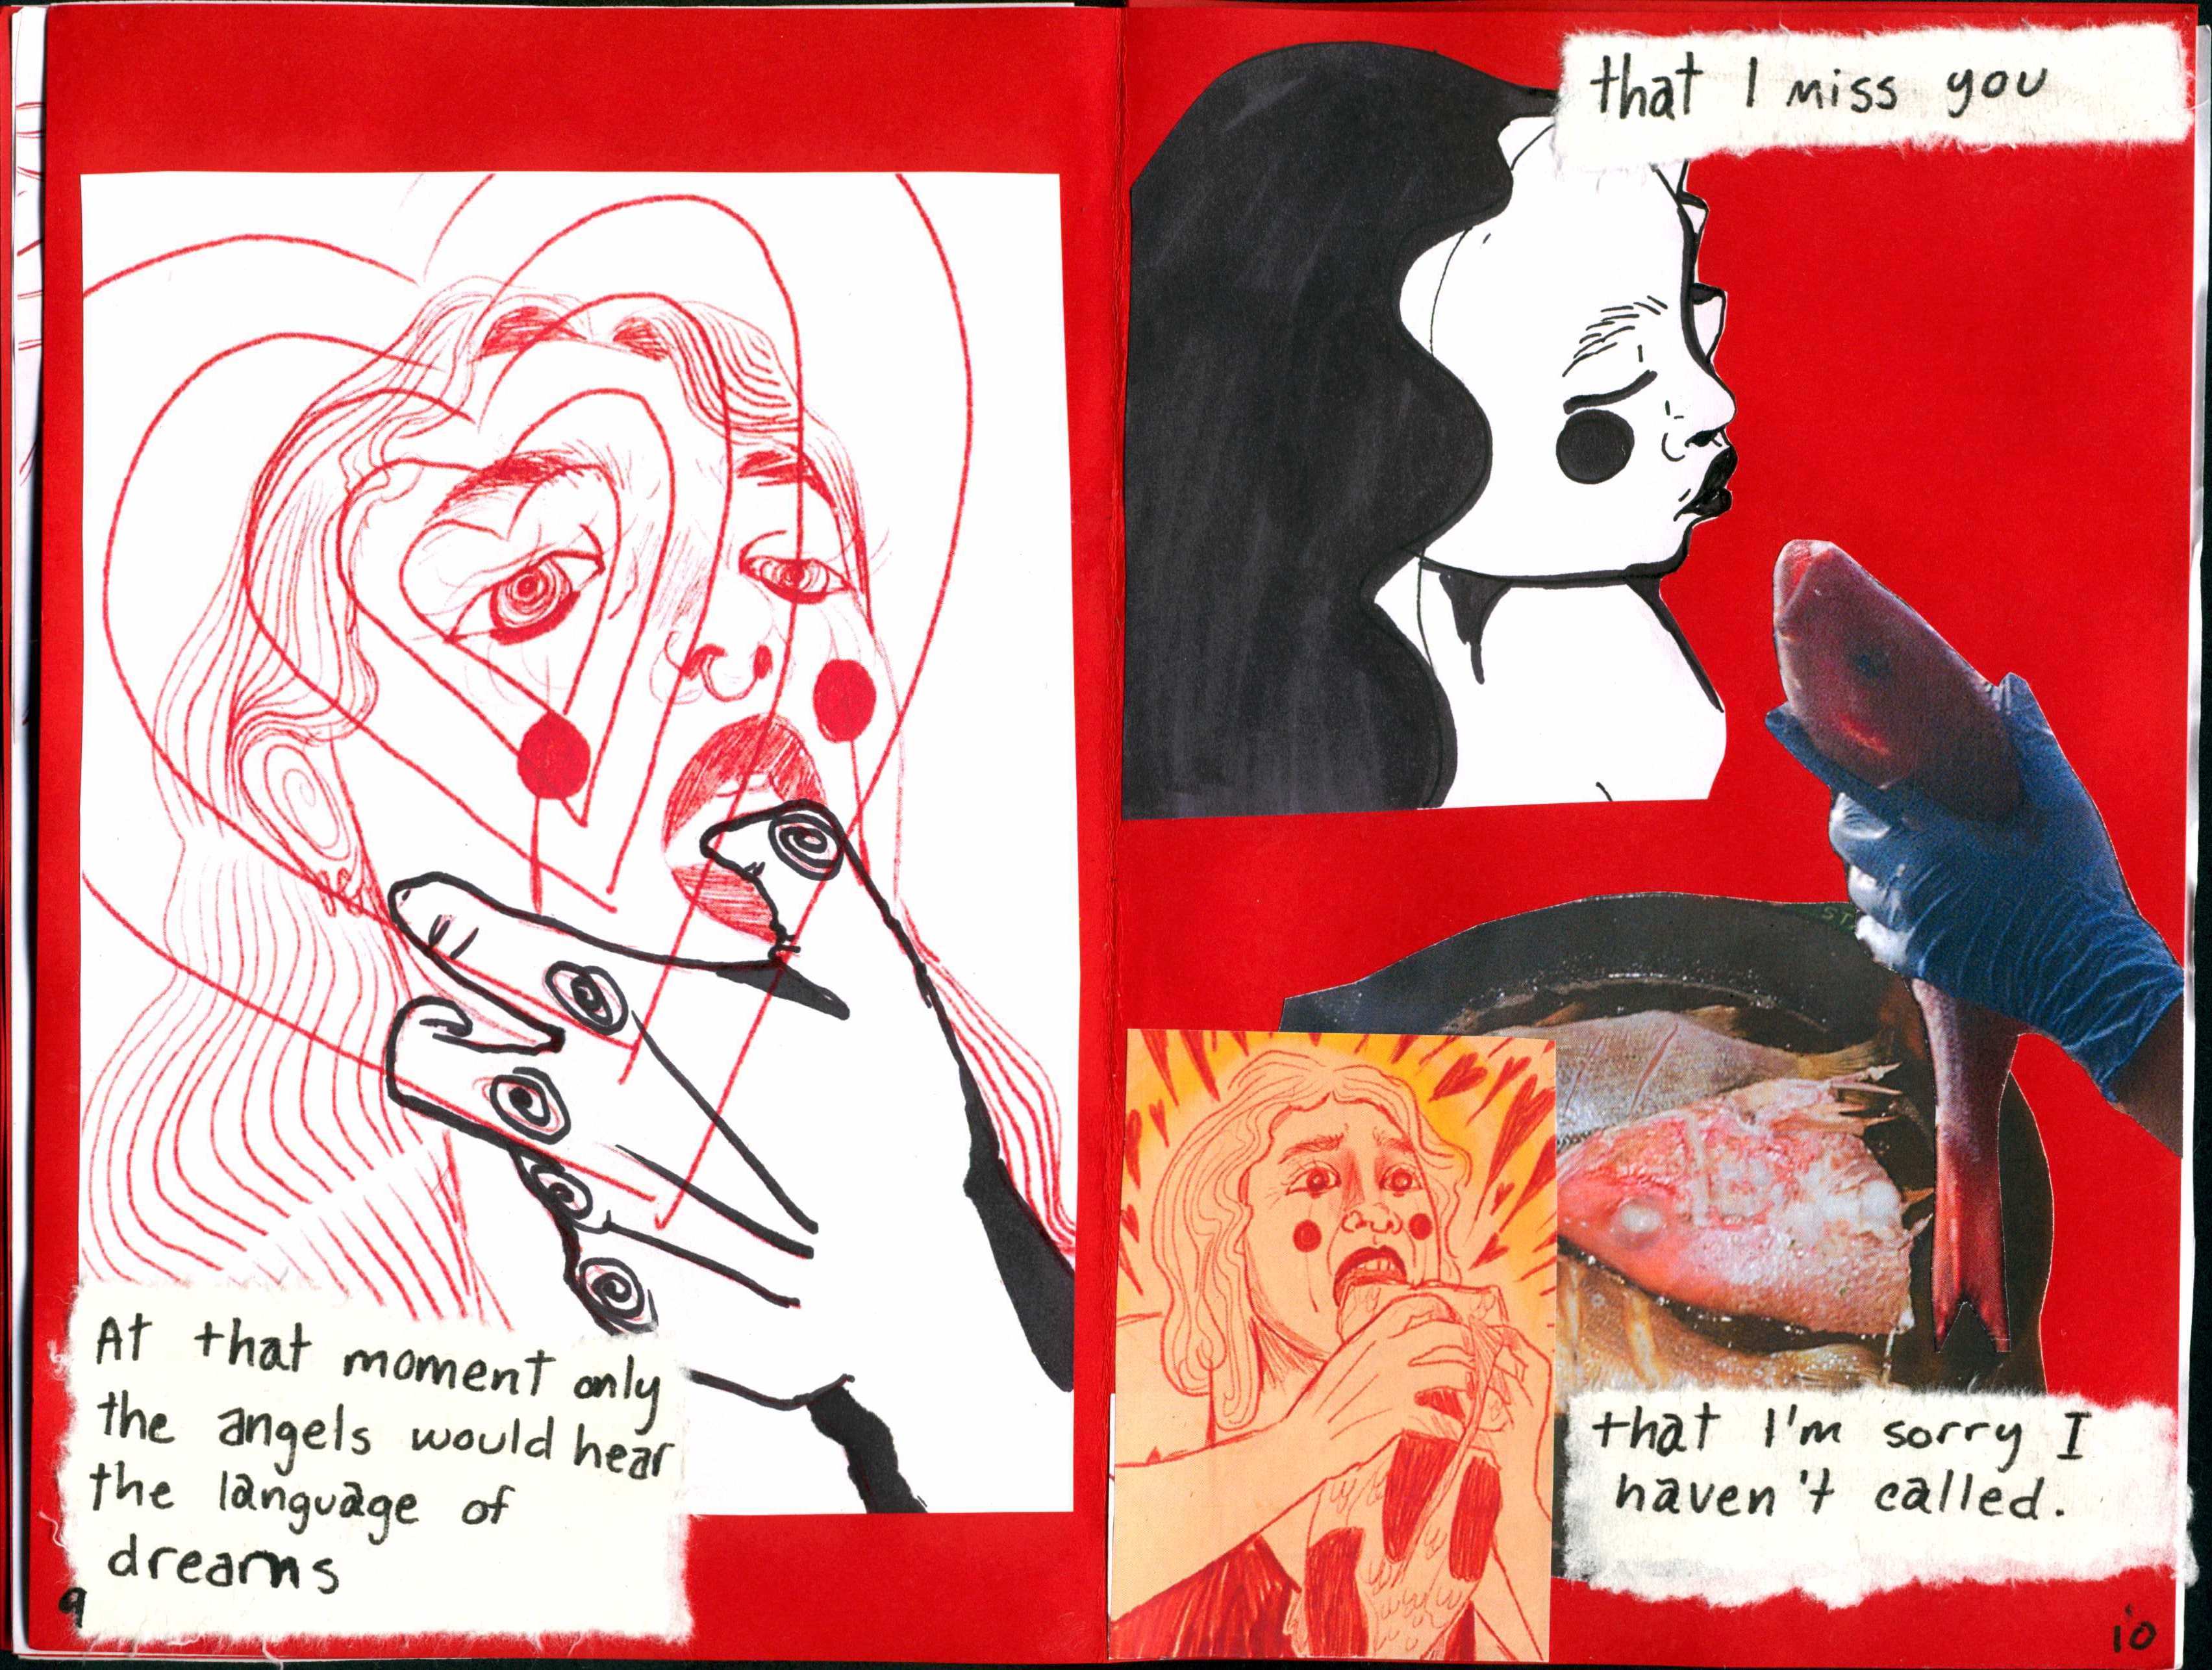 At that moment only
the angels would hear
the language of
dreams
9
that I miss you
ST
that I'm sorry I
haven't called.
10